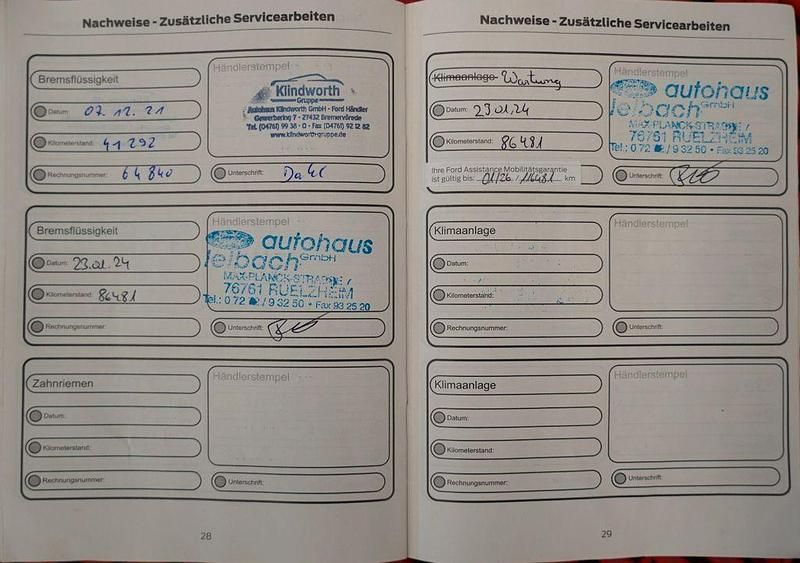 Nachweise - Zusätzliche Servicearbeiten
Bremsflüssigkeit
Händlerstempel
Datum: 07.12.21
Kilometerstand: 41292
Rechnungsnummer: 64840
Klindworth
Gruppe
Autohaus Klindworth GmbH - Ford Händler
Gewerbering 7 - 27432 Bremervörde
Tel. (04761) 99 38 - 0 - Fax (04761) 92 12 82
www.klindworth-gruppe.de
Unterschrift:
Bremsflüssigkeit
Händlerstempel
Datum: 23.01.24
Kilometerstand: 86481
Rechnungsnummer:
autohaus
leibach GmbH
MAX-PLANCK-STRASSE
76761 RUELZHEIM
Tel.: 0 72 / 9 32 50 • Fax 93 25 20
Unterschrift:
Zahnriemen
Händlerstempel
Datum:
Kilometerstand:
Rechnungsnummer:
Unterschrift:
28
Nachweise - Zusätzliche Servicearbeiten
Klimaanlage Wartung
Händlerstempel
Datum: 23.01.24
Kilometerstand: 86481
Ihre Ford Assistance Mobilitätsgarantie
ist gültig bis: 01/26 / 116481 km
autohaus
leibach GmbH
MAX-PLANCK-STRASSE
76761 RUELZHEIM
Tel.: 0 72 / 9 32 50 • Fax 93 25 20
Unterschrift:
Klimaanlage
Händlerstempel
Datum:
Kilometerstand:
Rechnungsnummer:
Unterschrift:
Klimaanlage
Händlerstempel
Datum:
Kilometerstand:
Rechnungsnummer:
Unterschrift:
29